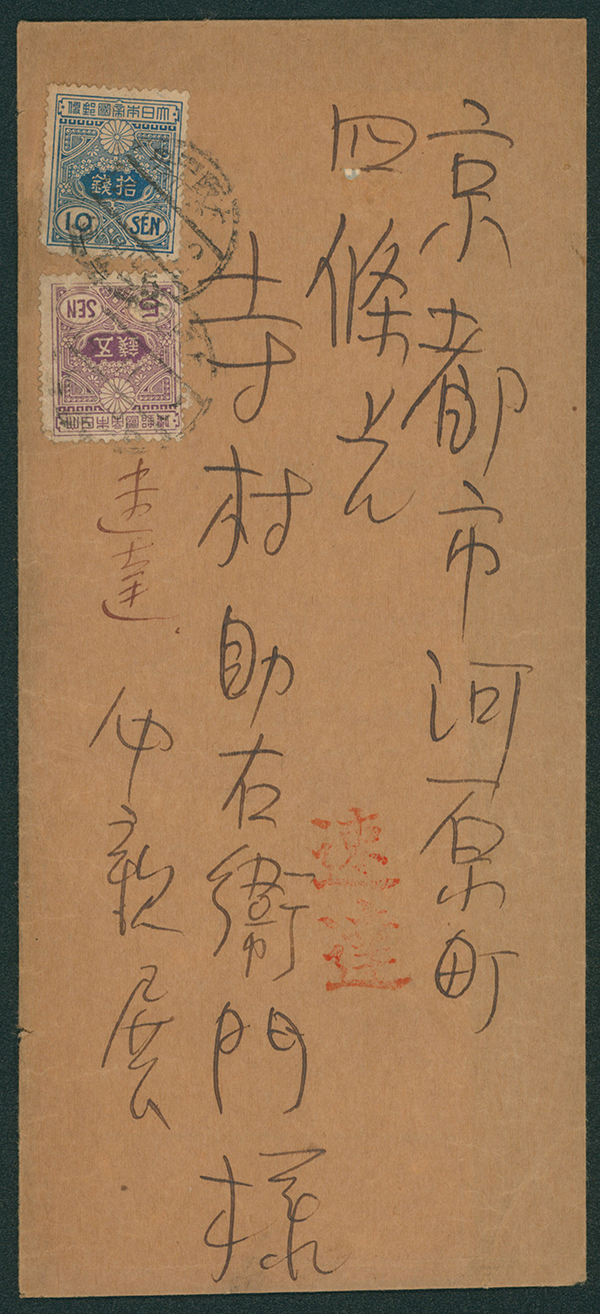 京都市河原町
四條上ル
寺村助右衛門様
速達
御親展
速達
大日本帝國郵便
拾錢
10 SEN
5 SEN
五錢
大日本帝國郵便